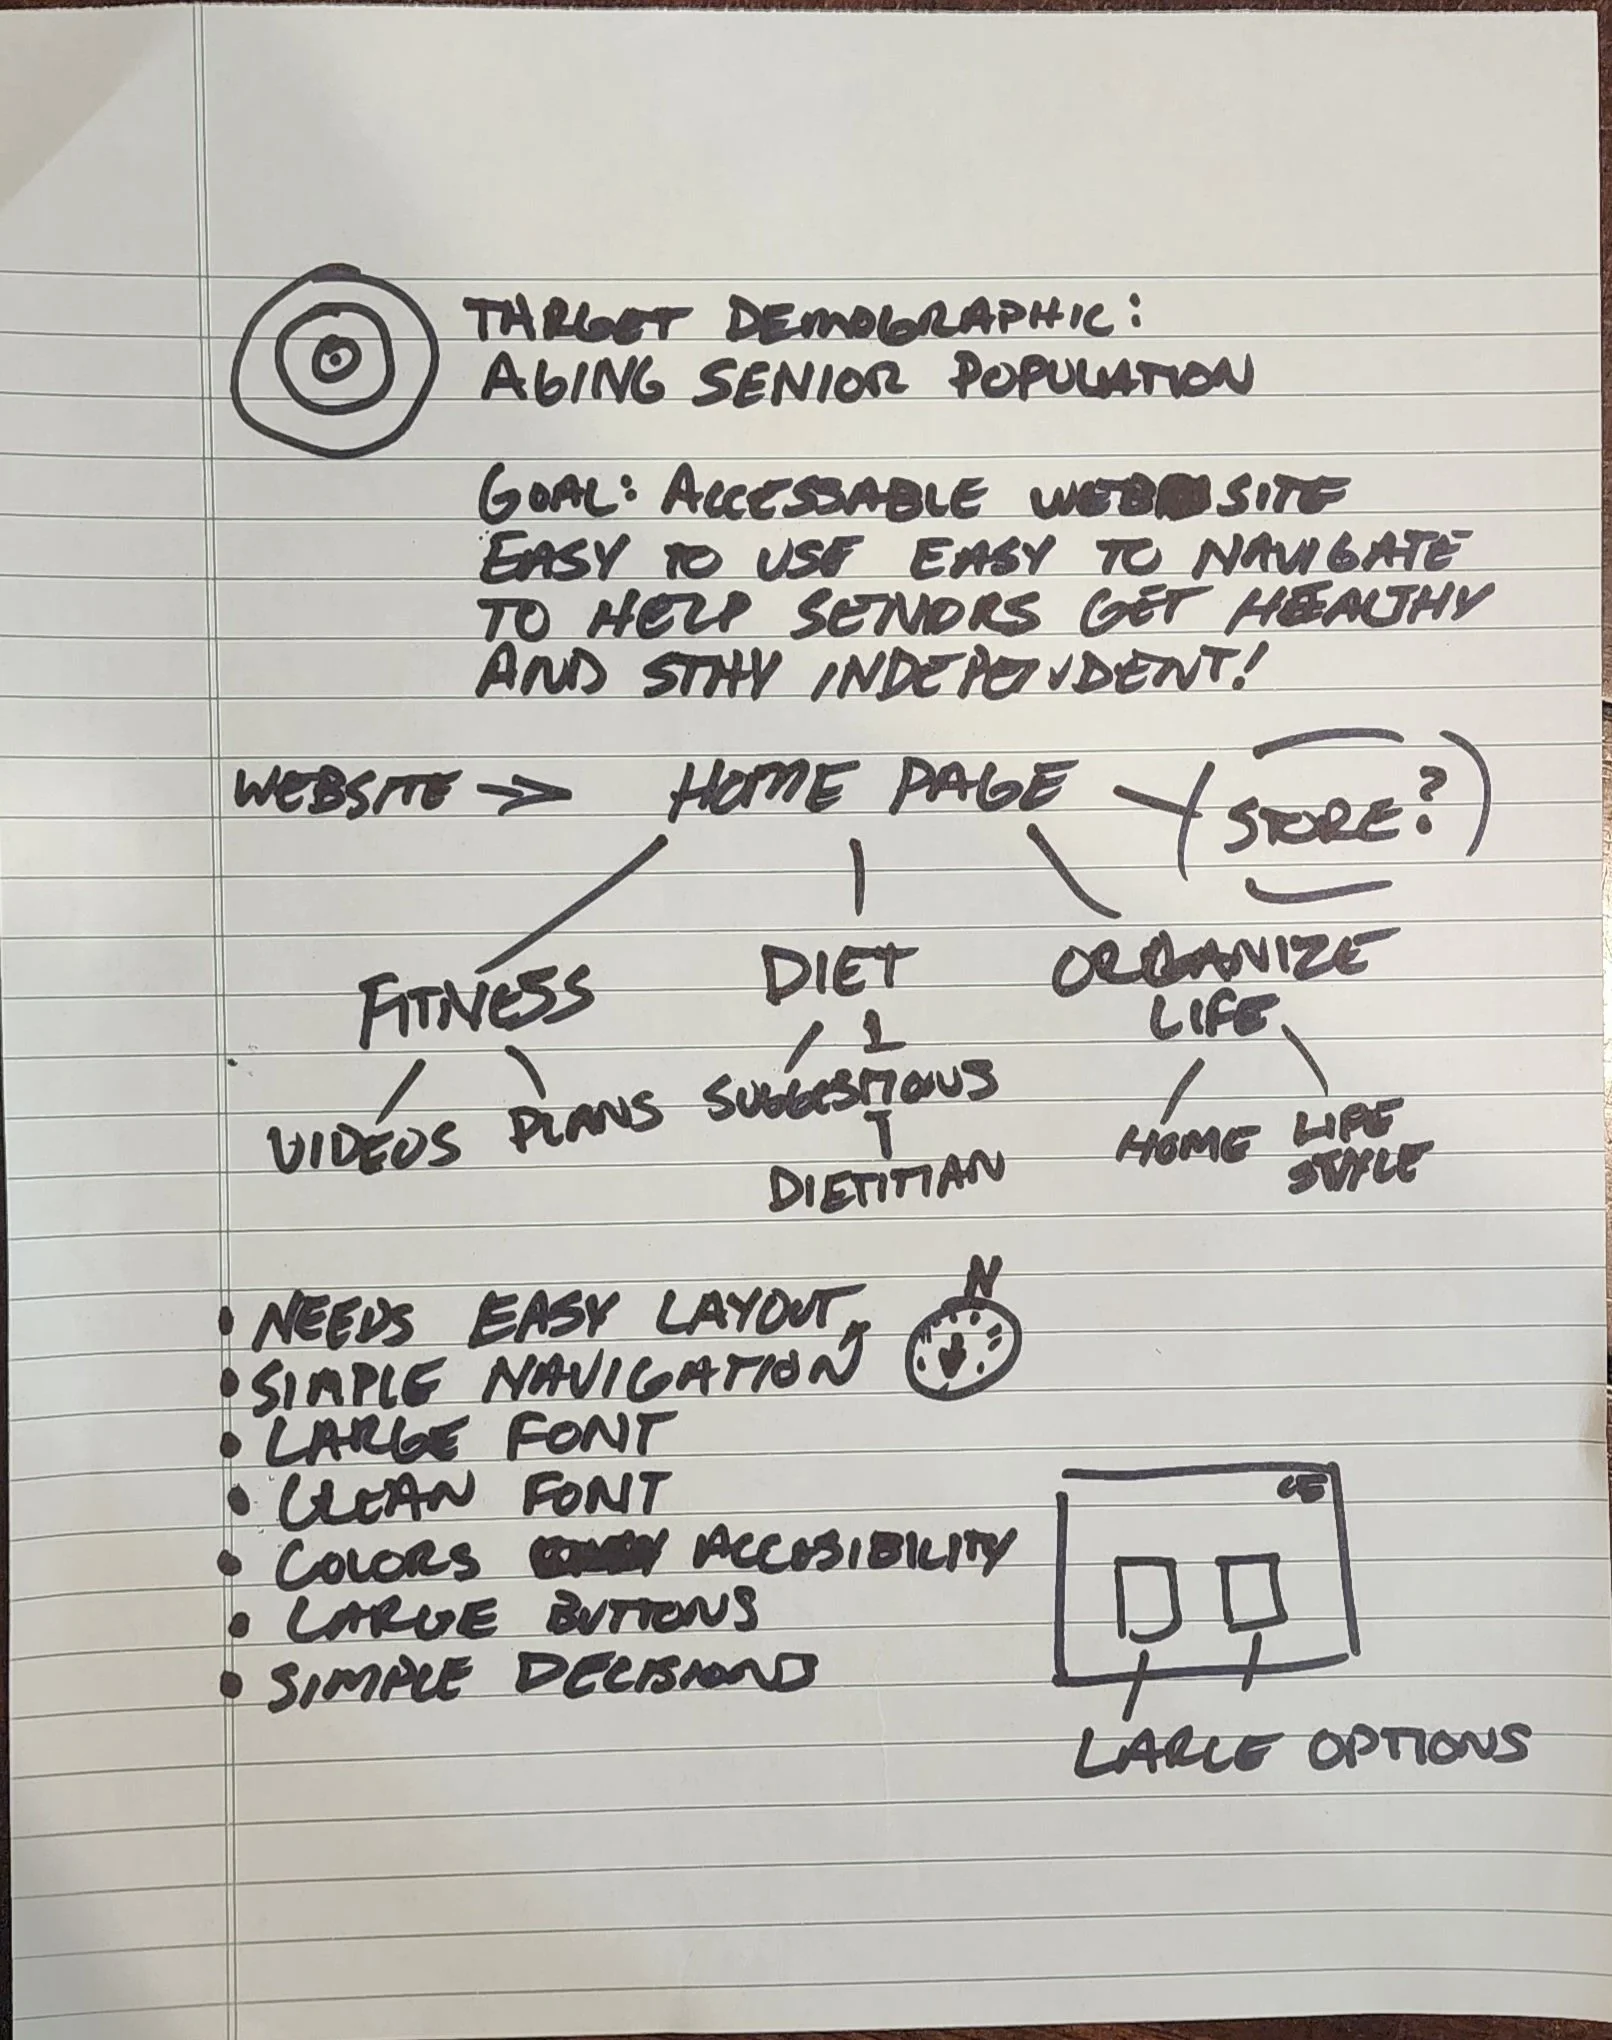 TARGET DEMOGRAPHIC:
AGING SENIOR POPULATION
GOAL: ACCESSABLE WEB SITE
EASY TO USE EASY TO NAVIGATE
TO HELP SENIORS GET HEALTHY
AND STAY INDEPENDENT!
WEBSITE → HOME PAGE (STORE?)
FITNESS DIET ORGANIZE
LIFE
VIDEOS PLANS SUGGESTIONS HOME LIFE
STYLE
DIETITIAN
N
• NEEDS EASY LAYOUT
• SIMPLE NAVIGATION
• LARGE FONT
• CLEAN FONT
• COLORS ACCESIBILITY
• LARGE BUTTONS
• SIMPLE DECISIONS
LARGE OPTIONS